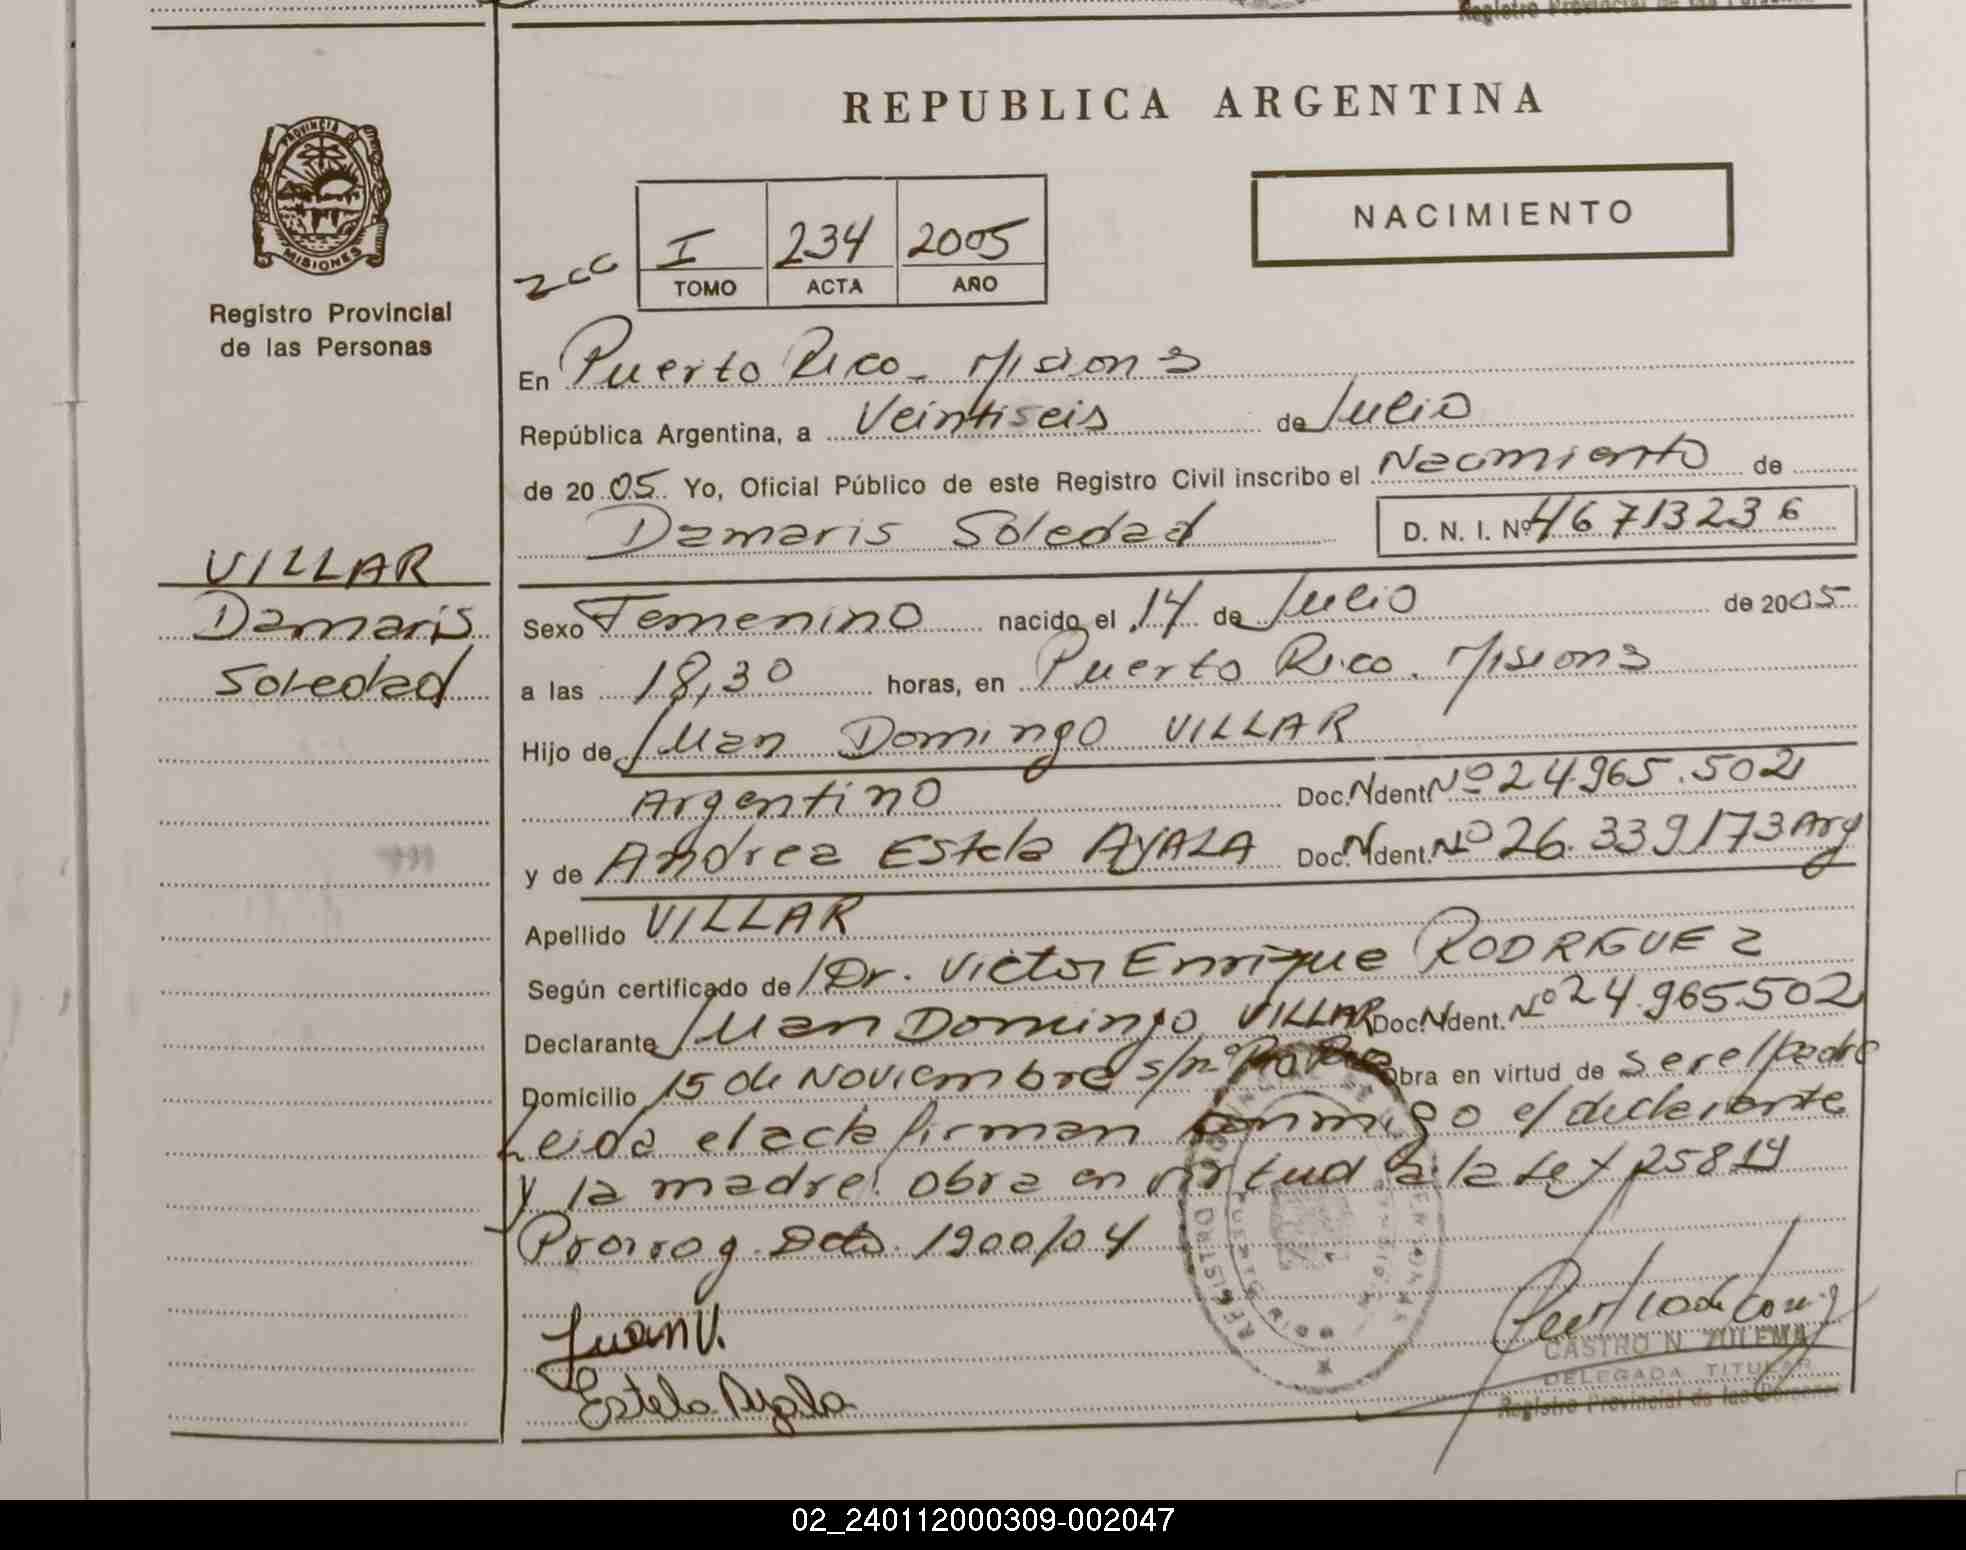 Registro Provincial de las Personas
REPUBLICA ARGENTINA
PROVINCIA DE
MISIONES
Registro Provincial
de las Personas
NACIMIENTO
I 234 2005
TOMO ACTA AÑO
En Puerto Rico - Misiones
República Argentina, a Veintiseis de Julio
de 2005. Yo, Oficial Público de este Registro Civil inscribo el Nacimiento de
Damaris Soledad D. N. I. Nº 46713236
VILLAR
Damaris
Soledad
Sexo Femenino nacido el 14 de Julio de 2005
a las 18,30 horas, en Puerto Rico. Misiones
Hijo de Juan Domingo VILLAR
Argentino Doc. N Ident. Nº 24.965.502
y de Andrea Estela AYALA Doc. N Ident. Nº 26.339173 Arg
Apellido VILLAR
Según certificado de Dr. Victor Enrique RODRIGUEZ
Declarante Juan Domingo VILLAR Doc. N Ident. Nº 24.965.502
Domicilio 15 de Noviembre s/nº Pto Rico Obra en virtud de ser el padre
Leida el acta firman conmigo el declarante
y la madre. obra en virtud a la Ley 25819
Prorrog. Dcto. 1900/04
Juan V.
Estela Ayala
CASTRO N. ZULEMA
DELEGADA TITULAR
Registro Provincial de las Personas
02_240112000309-002047